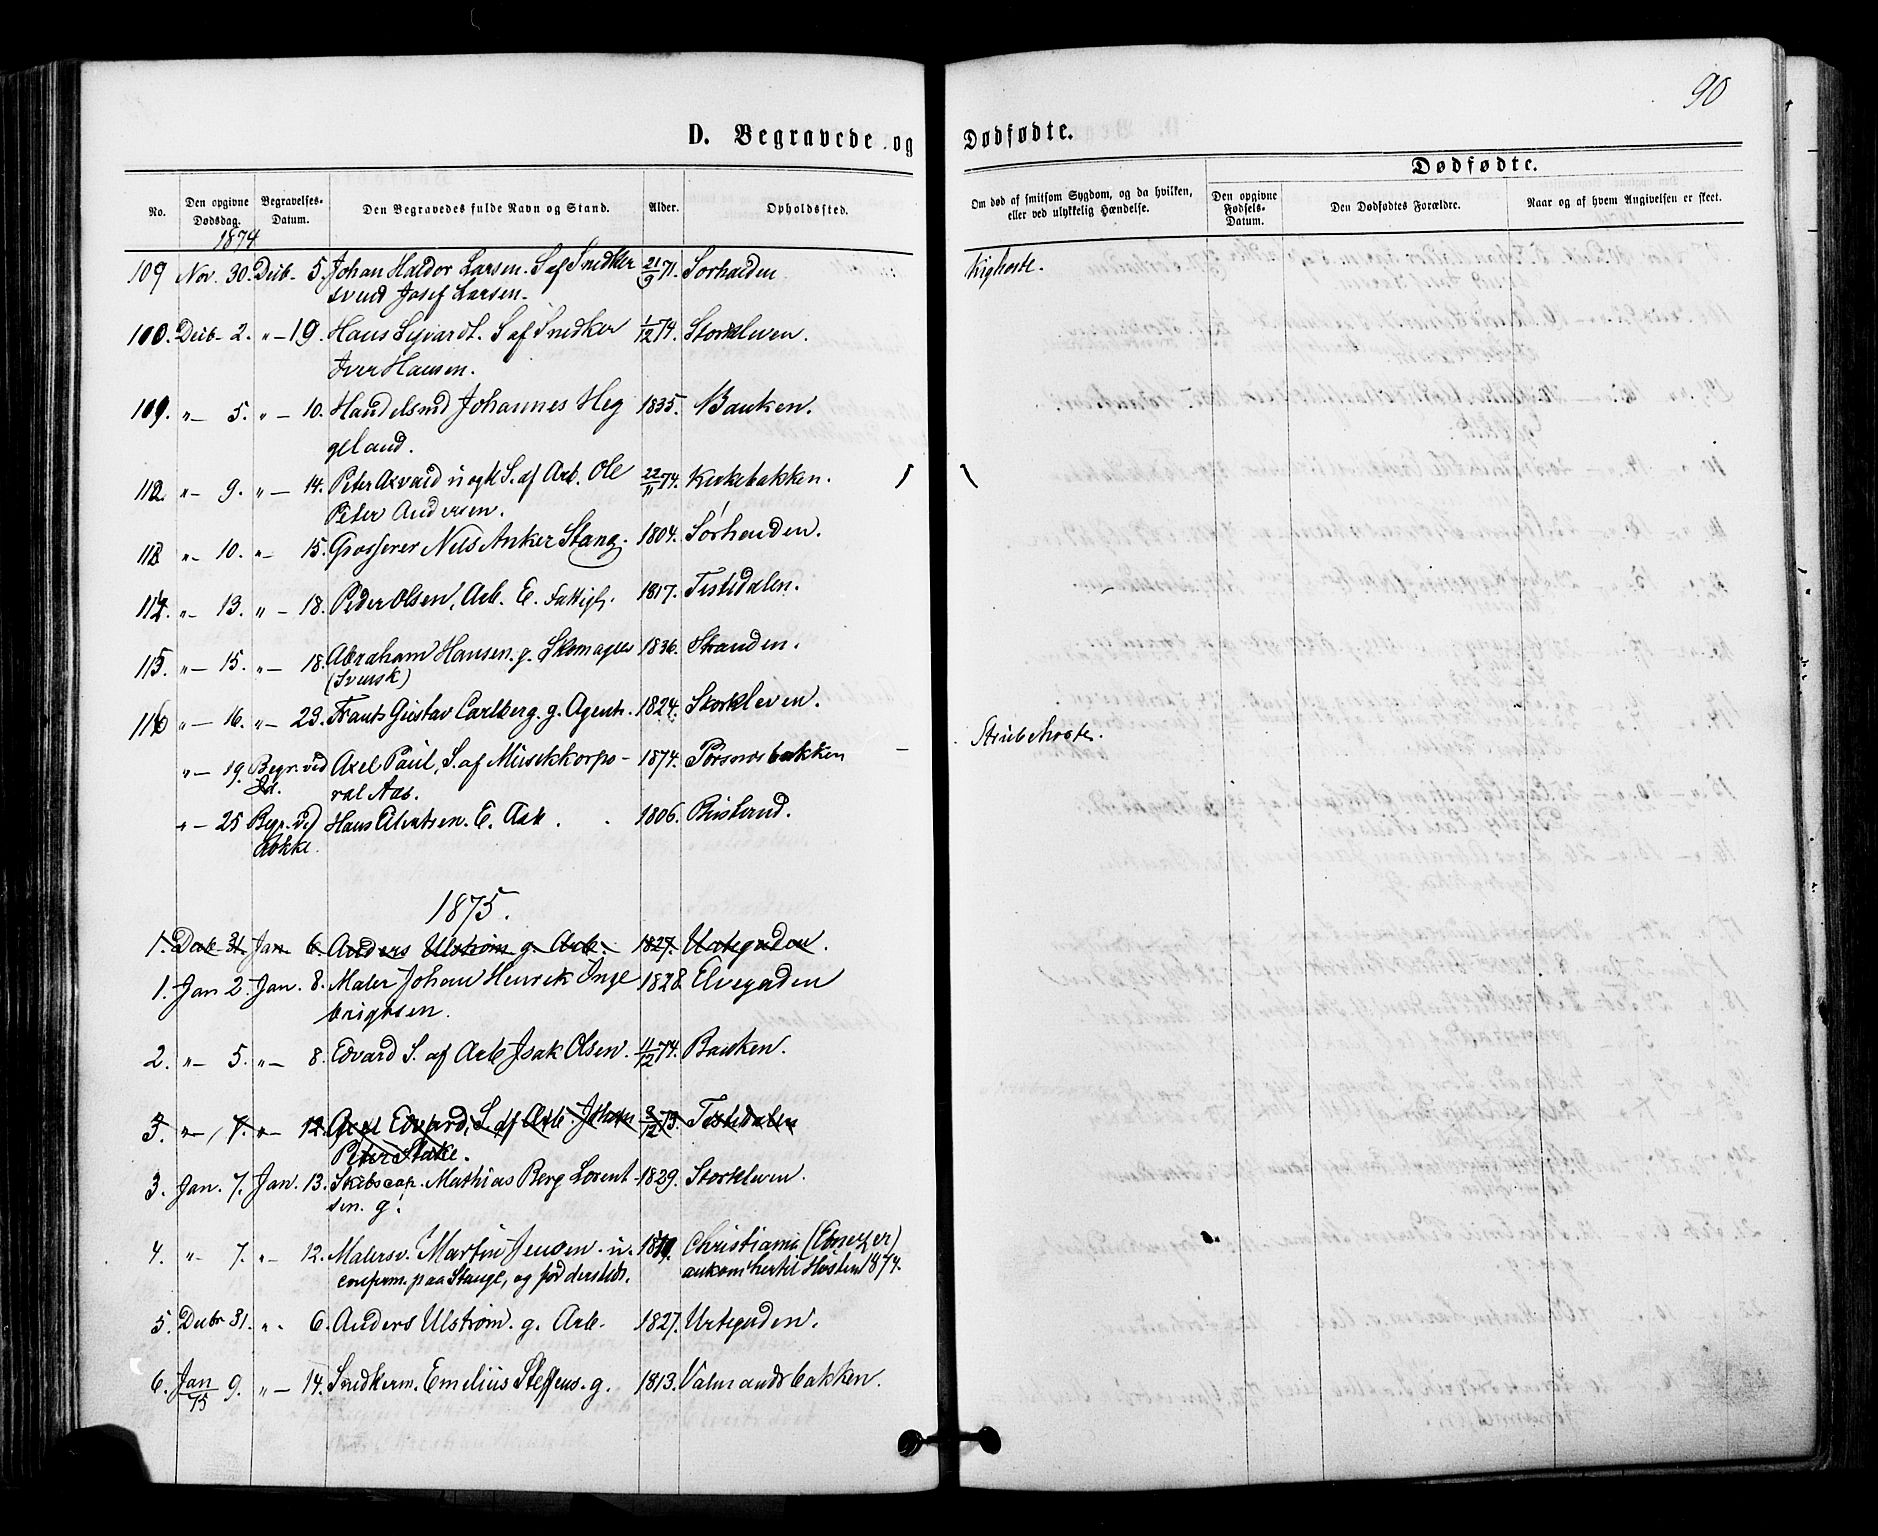 90
D. Begravede og Dødfødte.
Dødfødte.
No. Den opgivne Dødsdag. Begravelses-Datum. Den Begravedes fulde Navn og Stand. Alder. Opholdssted. Om død af smitsom Sygdom, og da hvilken, eller ved ulykkelig Hændelse. Den opgivne Fødsels-Datum. Den Dødfødtes Forældre. Naar og af hvem Angivelsen er skeet.
1874
109 Nov. 30. Decb. 5. Johan Haldor Larsen. S. af Snedker 21/9 71. Sørhalden. Kighoste.
svend Josef Larsen.
110. Decb. 2. " — 19. Hans Sigvardt. S. af Snedker 1/12 74. Storkleven.
Iver Hansen.
" — 5. " — 10. Handelsmd Johannes Heg 1835. Banken.
geland.
112. " — 9. " — 14. Peter Axvard uægte S. af Arb. Ole 22/11 74. Kirkebakken.
Peter Andersen.
113 " — 10. " — 15. Grosserer Nils Anker Stang. 1804. Sørhalden.
114. " — 13. " — 18. Peder Olsen, Arb. E. Fattigl. 1817. Tistedalen.
115. " — 15. " — 18. Abraham Hansen. g. Skomager 1836. Stranden.
(Svensk)
116 " — 16. " — 23. Frants Gustav Carlberg. g. Agent. 1824. Storkleven.
" — 19. Begr. ved Axel Paul, S. af Musikkorpo- 1874. Porsnesbakken Strubehoste.
Id. ral Aas.
" — 25 Begr. ved Hans E. Arb. 1806. Risland.
Rokke.
1875.
1. Decb. 31. Jan. 6. Anders Ulstrøm g. Arb. 1827. Urtegaden.
1. Jan 2. Jan. 8. Maler Johan Henrik Inge 1828. Elvegaden
brigtsen.
2. " — 5. " — 8. Edvard S. af Arb Isak Olsen. 11/12 74. Banken.
3. " — 7. " — 12. Axel Edvard, S. af Arb. Johan 2/12 73. Tistedalen
Peter Stake.
3. Jan. 7. Jan. 13. Skibscap. Mathias Berg Lorent- 1829. Storkleven.
sen. g.
4. " — 7. " — 12. Malersv. Martin Jensen. u. Christiania (Ebnezer)
conferm. paa Stange, og fød dersteds. ankom hertil Høsten 1874.
5. Decbr 31. " — 6. Anders Ulstrøm. g. Arb. 1827. Urtegaden.
6. Jan/75 9. " — 14. Snedkerm. Emelius Steffens. g. 1813. Valmandsbakken.